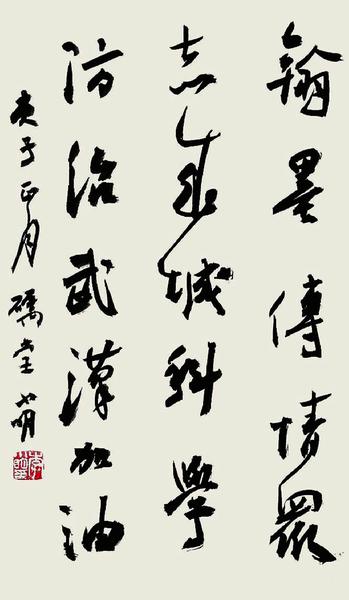 翰墨傳情眾
志成城科學
防治武漢加油
庚子正月 堂